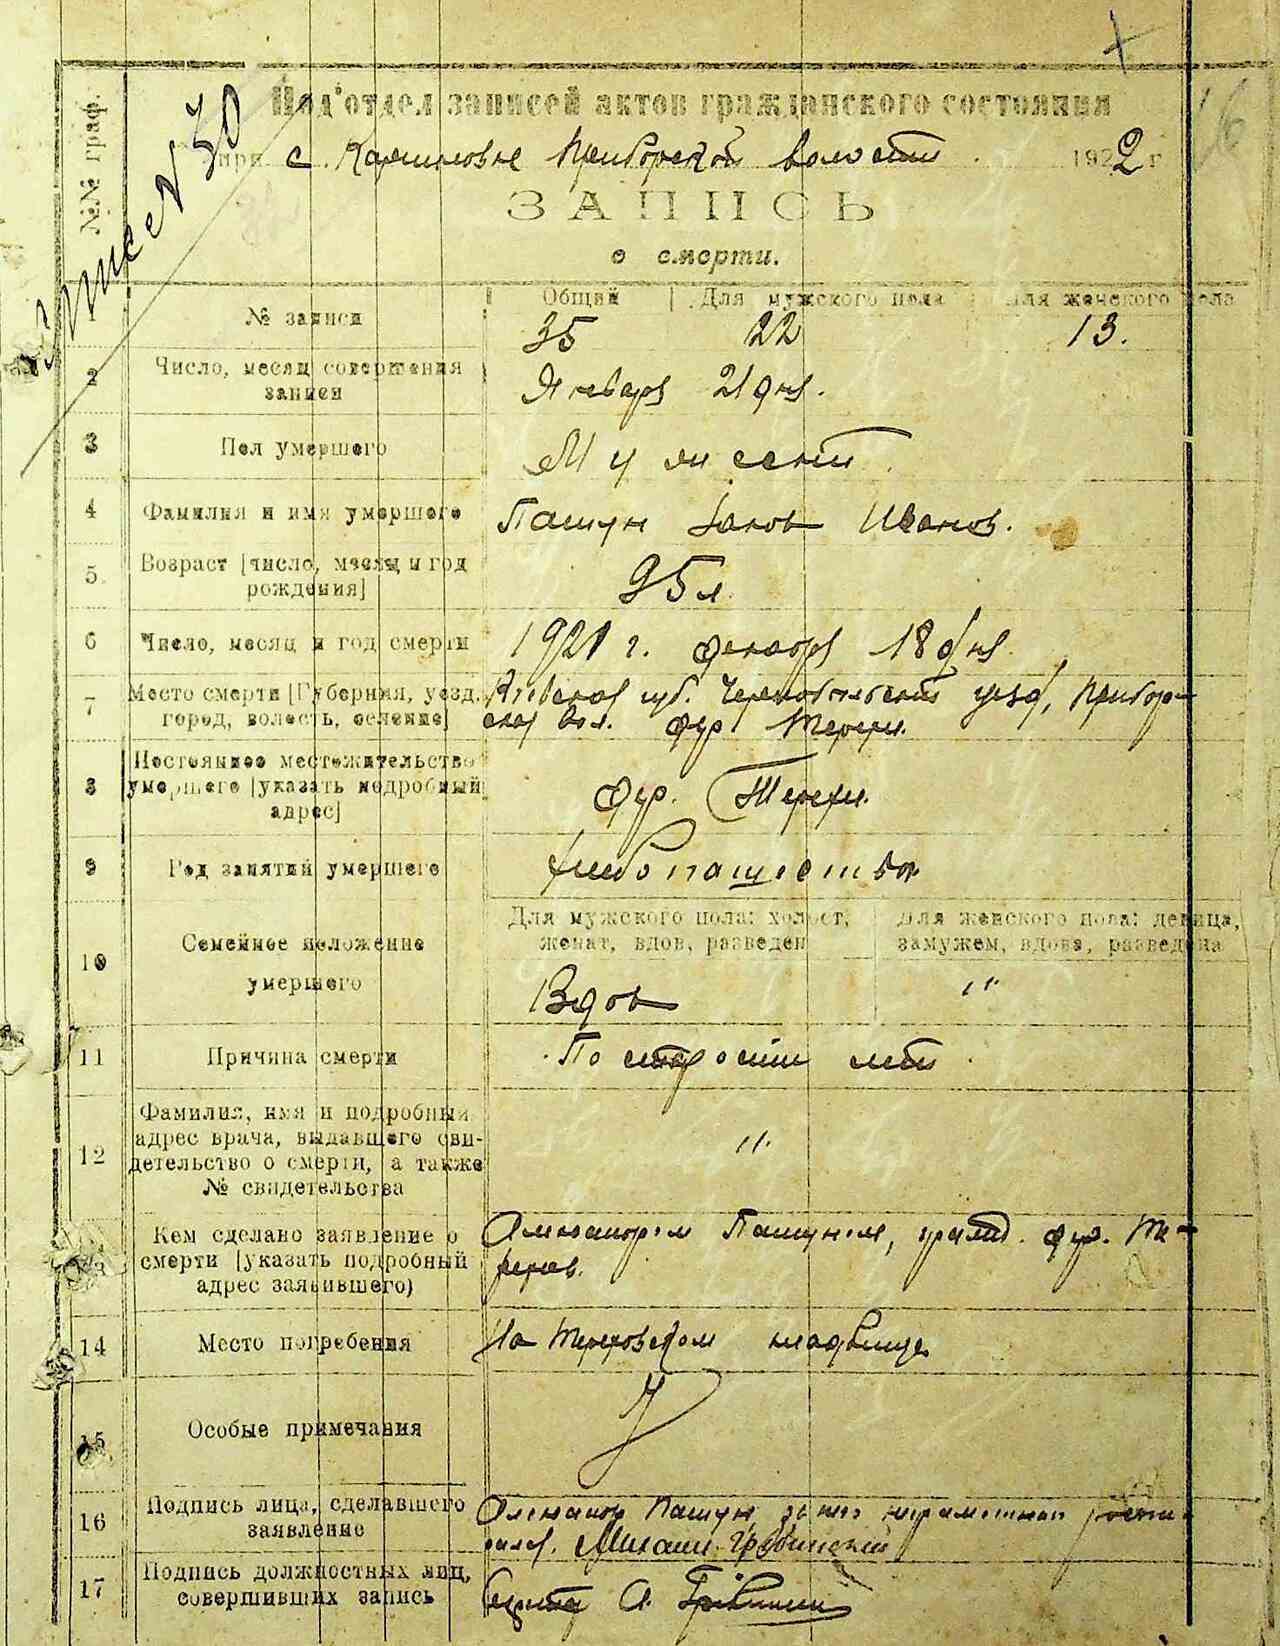 №№ граф.
Под'отдел записей актов гражданского состояния
при с. Карпиловке Приборской волости 1922 г
ЗАПИСЬ
о смерти.
Общий Для мужского пола Для женского пола
1 № записи 35 22 13.
2 Число, месяц совершения
записи Января 21 дня.
3 Пол умершего Мужеский
4 Фамилия и имя умершего Пашун Яков Иванов.
5 Возраст [число, месяц и год
рождения] 95 л.
6 Число, месяц и год смерти 1921 г. декабря 18 дня
7 Место смерти [Губерния, уезд, Киевская губ. Чернобыльский уезд, Прибор-
город, волость, селение] ская вол. дер. Терехи.
8 Постоянное местожительство
умершего [указать подробный дер. Терехи.
адрес]
9 Род занятий умершего Хлебопашество
Для мужского пола: холост, Для женского пола: девица,
женат, вдов, разведен замужем, вдова, разведена
10 Семейное положение
умершего Вдов "
11 Причина смерти По старости лет.
12 Фамилия, имя и подробный
адрес врача, выдавшего сви-
детельство о смерти, а также "
№ свидетельства
13 Кем сделано заявление о Пашуном, дер. Те-
смерти [указать подробный рехов.
адрес заявившего)
14 Место погребения На Тереховском кладбище
15 Особые примечания
16 Подпись лица, сделавшего Пашун
заявление Михаил
17 Подпись должностных лиц,
совершивших запись А.